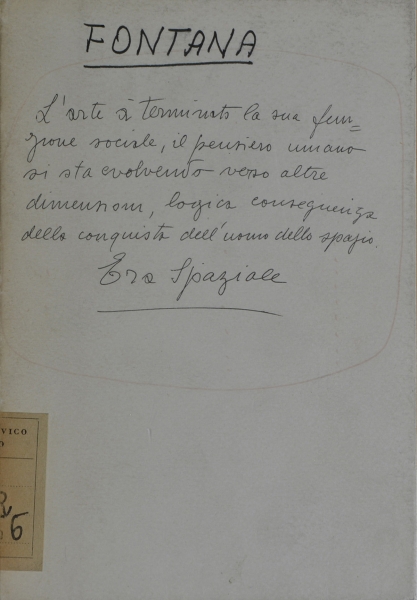 FONTANA
L'arte à terminato la sua fun=
zione sociale, il pensiero umano
si sta evolvendo verso altre
dimensioni, logica conseguenza
della conquista dell'uomo dello spazio.
Era Spaziale
VICO
O
6